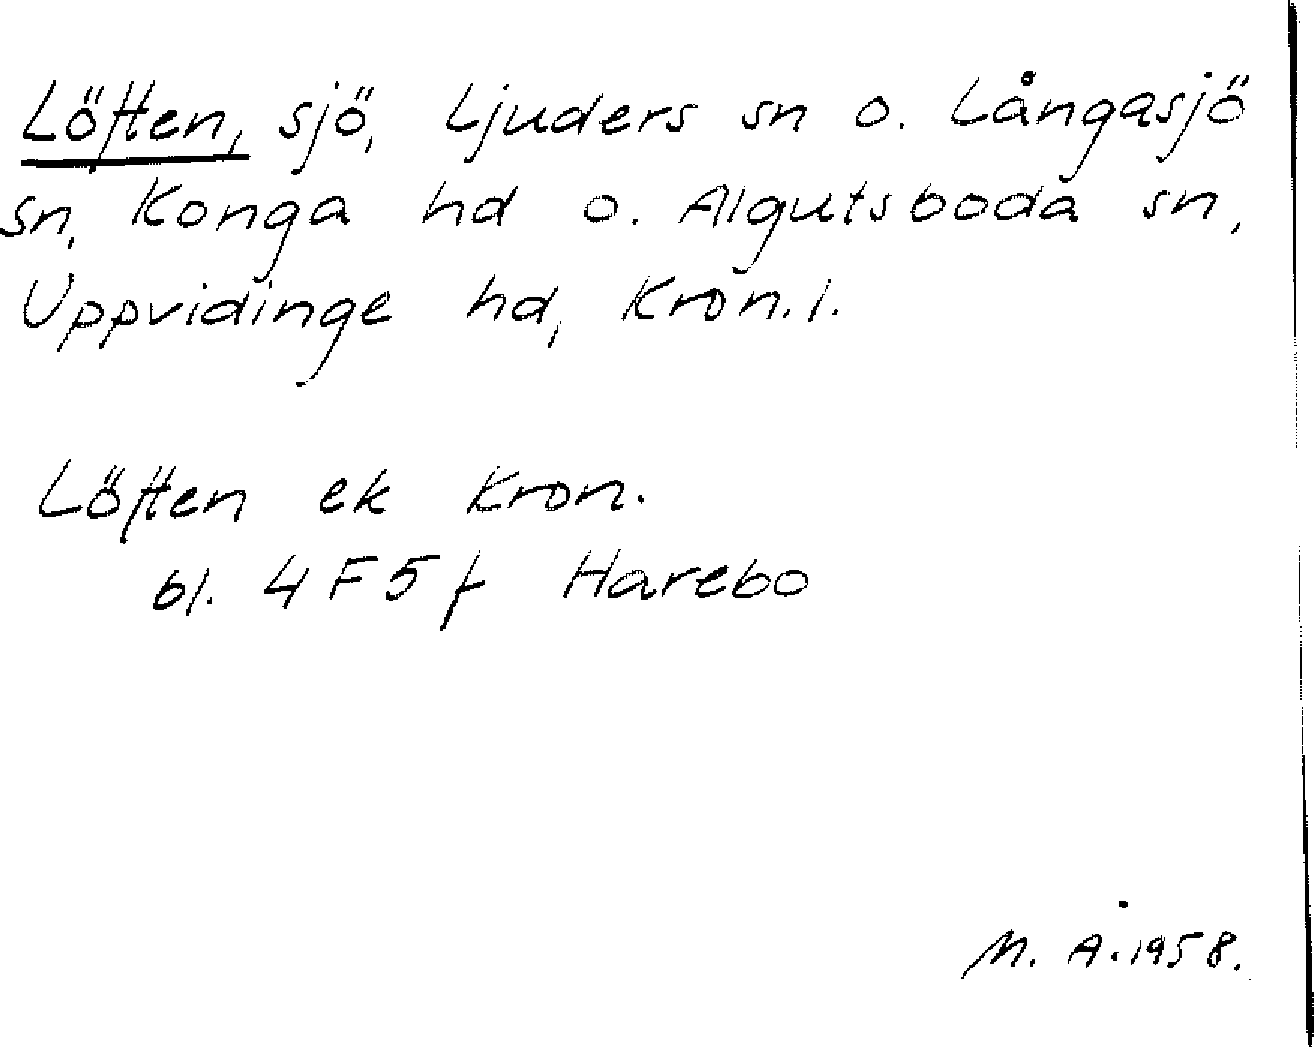 Löften, sjö, Ljuders sn o. Långasjö
sn, Konga hd o. Algutsboda sn,
Uppvidinge hd, Kron. l.
Löften ek Kron.
bl. 4 F 5 f Harebo
M. Å. 1958.